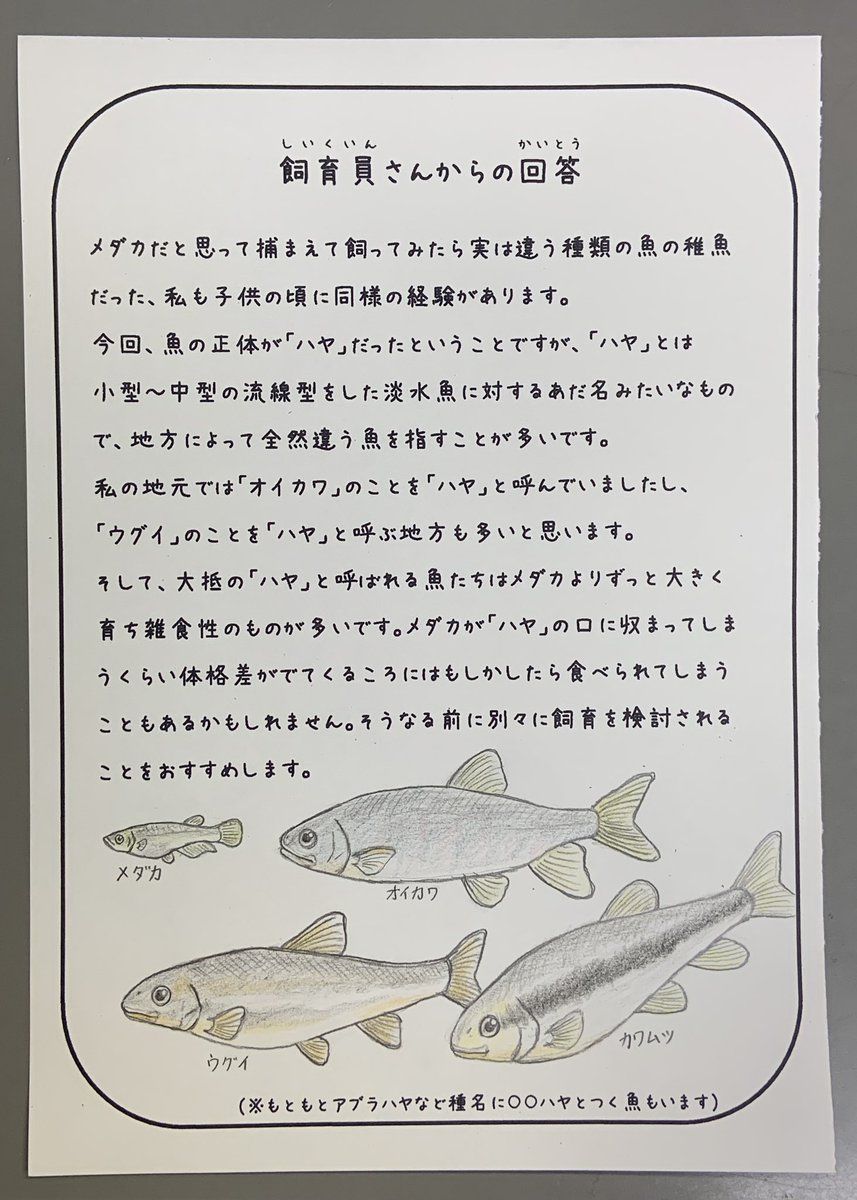 しいくいん かいとう
飼育員さんからの回答
メダカだと思って捕まえて飼ってみたら実は違う種類の魚の稚魚
だった、私も子供の頃に同様の経験があります。
今回、魚の正体が「ハヤ」だったということですが、「ハヤ」とは
小型～中型の流線型をした淡水魚に対するあだ名みたいなもの
で、地方によって全然違う魚を指すことが多いです。
私の地元では「オイカワ」のことを「ハヤ」と呼んでいましたし、
「ウグイ」のことを「ハヤ」と呼ぶ地方も多いと思います。
そして、大抵の「ハヤ」と呼ばれる魚たちはメダカよりずっと大きく
育ち雑食性のものが多いです。メダカが「ハヤ」の口に収まってしま
うくらい体格差がでてくるころにはもしかしたら食べられてしまう
こともあるかもしれません。そうなる前に別々に飼育を検討される
ことをおすすめします。
メダカ
オイカワ
ウグイ
カワムツ
(※もともとアブラハヤなど種名に〇〇ハヤとつく魚もいます)